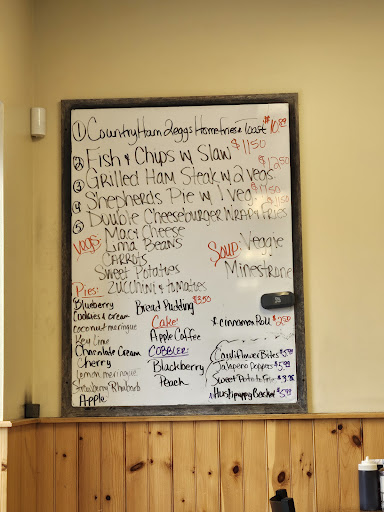 ① Country Ham 2 eggs Homefries & Toast $10.99
② Fish & Chips w/ Slaw $11.50
③ Grilled Ham Steak w/ 2 Vegs $12.50
④ Shepherds Pie w/ 1 Veg $11.50
⑤ Double Cheeseburger Wrap & Fries $11.50
Vegs: Mac & Cheese
Lima Beans
Carrots
Sweet Potatoes
Zucchini & tomatoes
Soup: Veggie
Minestrone
Pies:
Blueberry
Cookies & cream
Coconut meringue
Key Lime
Chocolate Cream
Cherry
Lemon meringue
Strawberry Rhubarb
Apple
Bread Pudding $3.50
Cake
Apple Coffee
Cobbler:
Blackberry
Peach
* cinnamon Roll $2.50
Cauliflower Bites $5.99
Jalapeno Poppers $5.99
Sweet Potato Fries $3.95
Hushpuppy Basket $5.99